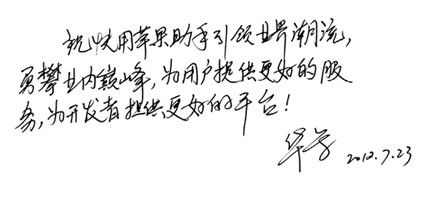 祝快用苹果助手引领世界潮流,
勇攀业内巅峰,为用户提供更好的服
务,为开发者提供更好的平台!
2012.7.23